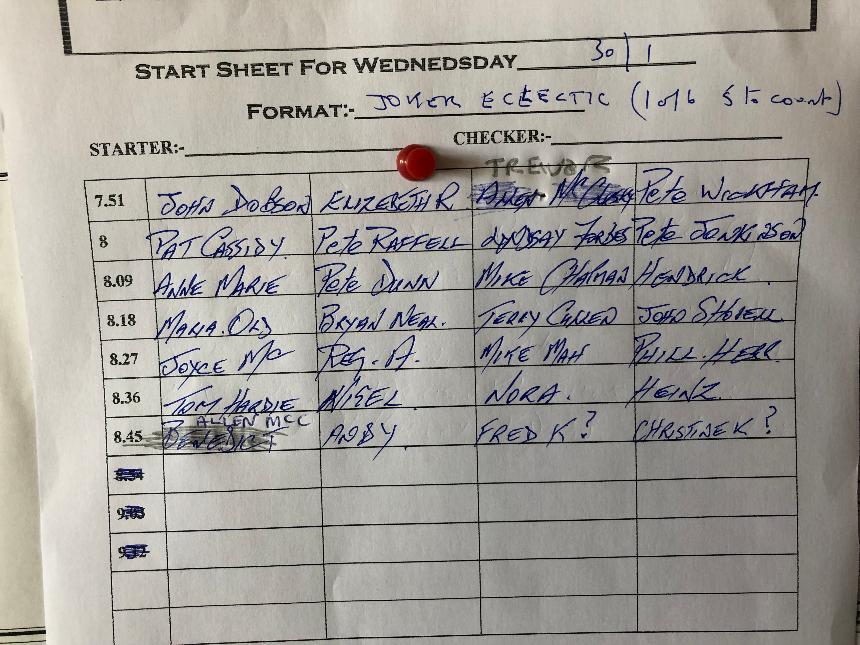 START SHEET FOR WEDNEDSDAY 30/1
FORMAT:- JOKER ECLECTIC (1 of 6 5 to count)
STARTER:- CHECKER:-
TREVOR
7.51 JOHN DOBSON ELIZEBETH R Pete WICKHAM
8 PAT CASSIDY Pete RAFFELL LYNDSAY FORBES Pete JENKINSON
8.09 ANNE MARIE Pete DUNN MIKE CHAPMAN HENDRICK
8.18 MARIA.OLD BRYAN NEAL. TERRY CULLEN JOHN
8.27 JOYCE MC REG. A. MIKE MAH PHILL.HERR
8.36 TOM HARDIE NIGEL NORA. HEINZ
ALLEN MCC
8.45 BENEDICT ANDY FRED K? CHRISTINE K?